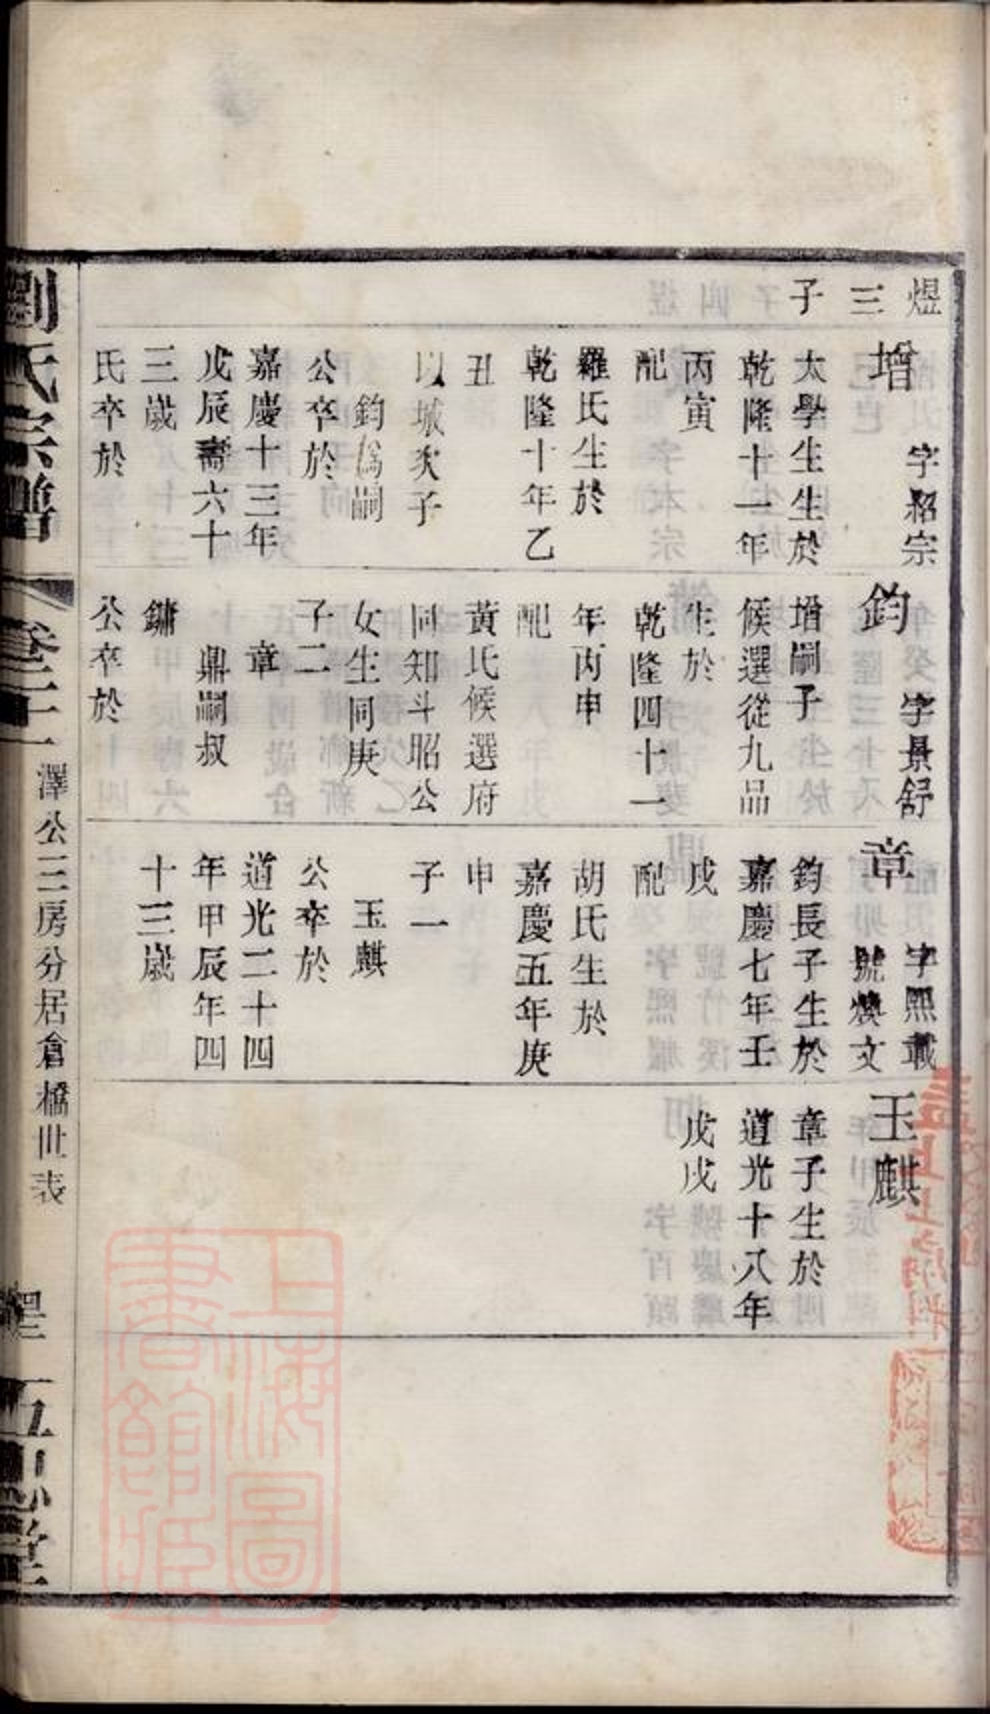 煜
三
子
增 字紹宗
太學生生於
乾隆十一年
丙寅
配
羅氏生於
乾隆十年乙
丑
以城次子
鈞爲嗣
公卒於
嘉慶十三年
戊辰壽六十
三歲
氏卒於
鈞 字景舒
增嗣子
候選從九品
生於
乾隆四十一
年丙申
配
黃氏候選府
同知斗昭公
女生同庚
子二
章
鼎嗣叔
鏞
公卒於
章 字熙載
號煥文
鈞長子生於
嘉慶七年壬
戌
配
胡氏生於
嘉慶五年庚
申
子一
玉麒
公卒於
道光二十四
年甲辰年四
十三歲
玉麒
章子生於
道光十八年
戊戌
劉氏宗譜
卷二
澤公三房分居倉橋世表
五忠堂
上海圖
書館藏